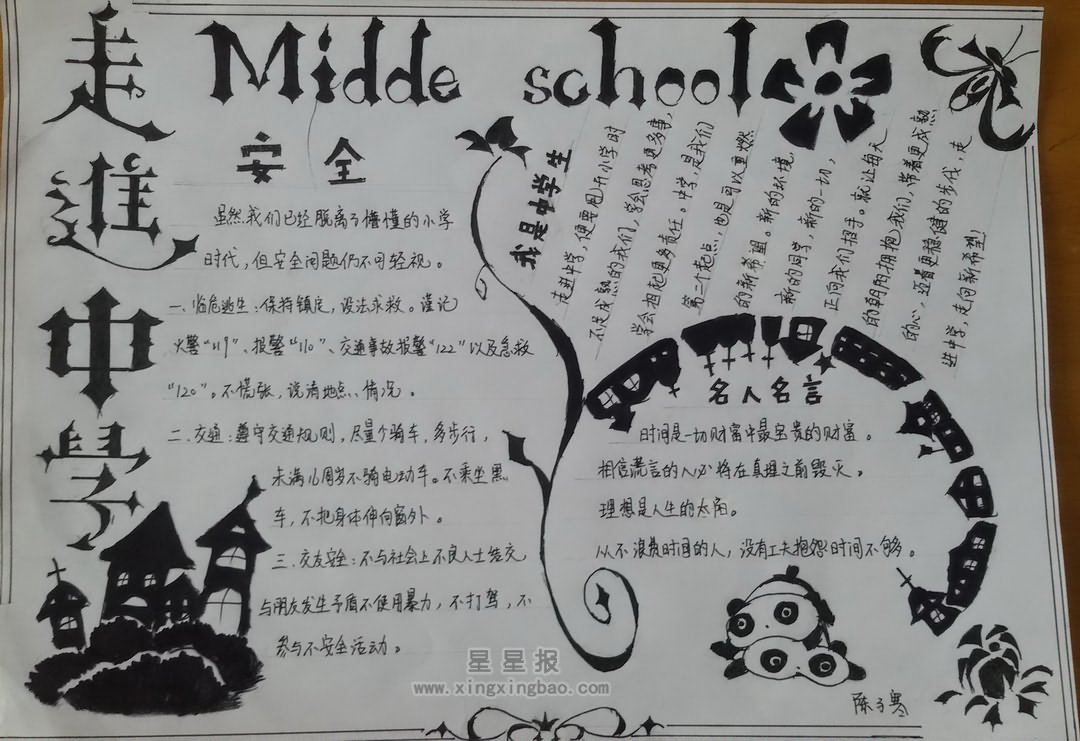 走進中学
Midde school
安全
虽然我们已经脱离了懵懂的小学
时代，但安全问题仍不可轻视。
一、临危逃生：保持镇定，设法求救。谨记
火警“119”、报警“110”、交通事故报警“122”以及急救
“120”。不慌张，说清地点、情况。
二、交通：遵守交通规则，尽量个骑车，多步行，
未满16周岁不骑电动车。不乘坐黑
车，不把身体伸向窗外。
三、交友安全：不与社会上不良人士结交
与朋友发生矛盾不使用暴力，不打骂，不
参与不安全活动。
我是中学生
走进中学，便要甩开小学时
不是成熟的我们，学会思考更多事，
学会担起更多责任。中学，是我们
第二个起点，也是可以重燃
的新希望。新的环境，
新的同学，新的一切，
正向我们招手。就让每天
的朝阳拥抱我们，带着更成熟
的心，迈着更稳健的步伐，走
进中学，走向新希望！
名人名言
时间是一切财富中最宝贵的财富。
相信谎言的人必将在真理之前毁灭。
理想是人生的太阳。
从不浪费时间的人，没有工夫抱怨时间不够。
陈子寒
星星报
www.xingxingbao.com